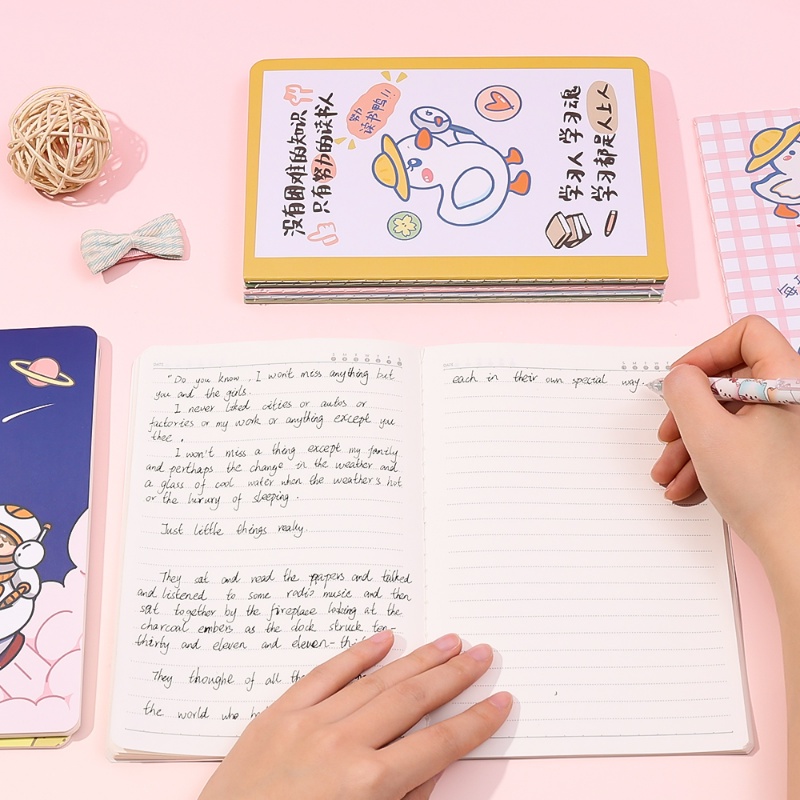 没有困难的知识
只有努力的读书人
努力
读书鸭!!
学习人 学习魂
学习都是人上人
"Do you know, I won't miss anything but
you and the girls.
I never liked cities or autos or
factories or my work or anything except you
thee.
I won't miss a thing except my family
and perhaps the change in the weather and
a glass of cool water when the weather's hot
or the luxury of sleeping.
Just little things really.
They sat and read the papers and talked
and listened to some radio music and then
sat together by the fireplace looking at the
charcoal embers as the clock struck ten-
thirty and eleven and eleven-thi
They thoughe of all th
the world who ha
each in their own special way.